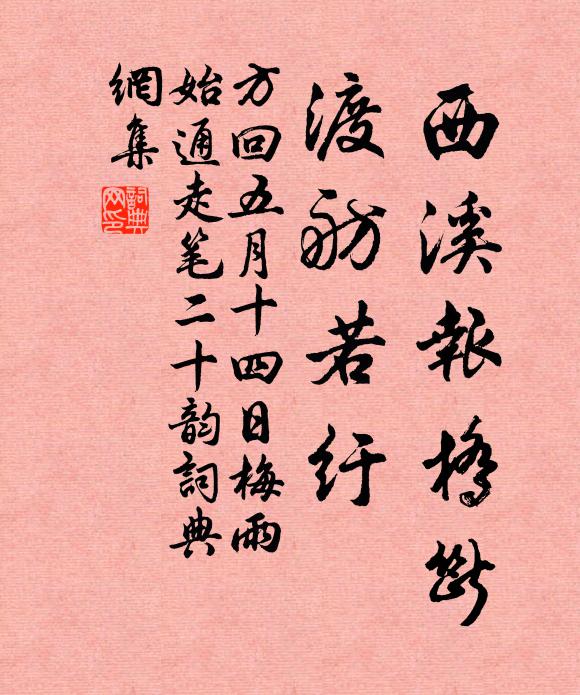 西溪報橋斷
渡舫若紆
方回五月十四日梅雨
始通走笔二十韵詞典
網集
詞典网印